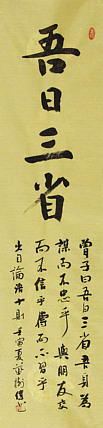 吾日三省
曾子曰吾日三省吾身為
謀而不忠乎與朋友交
而不信乎傳而不習乎
出自論語十則壬寅夏